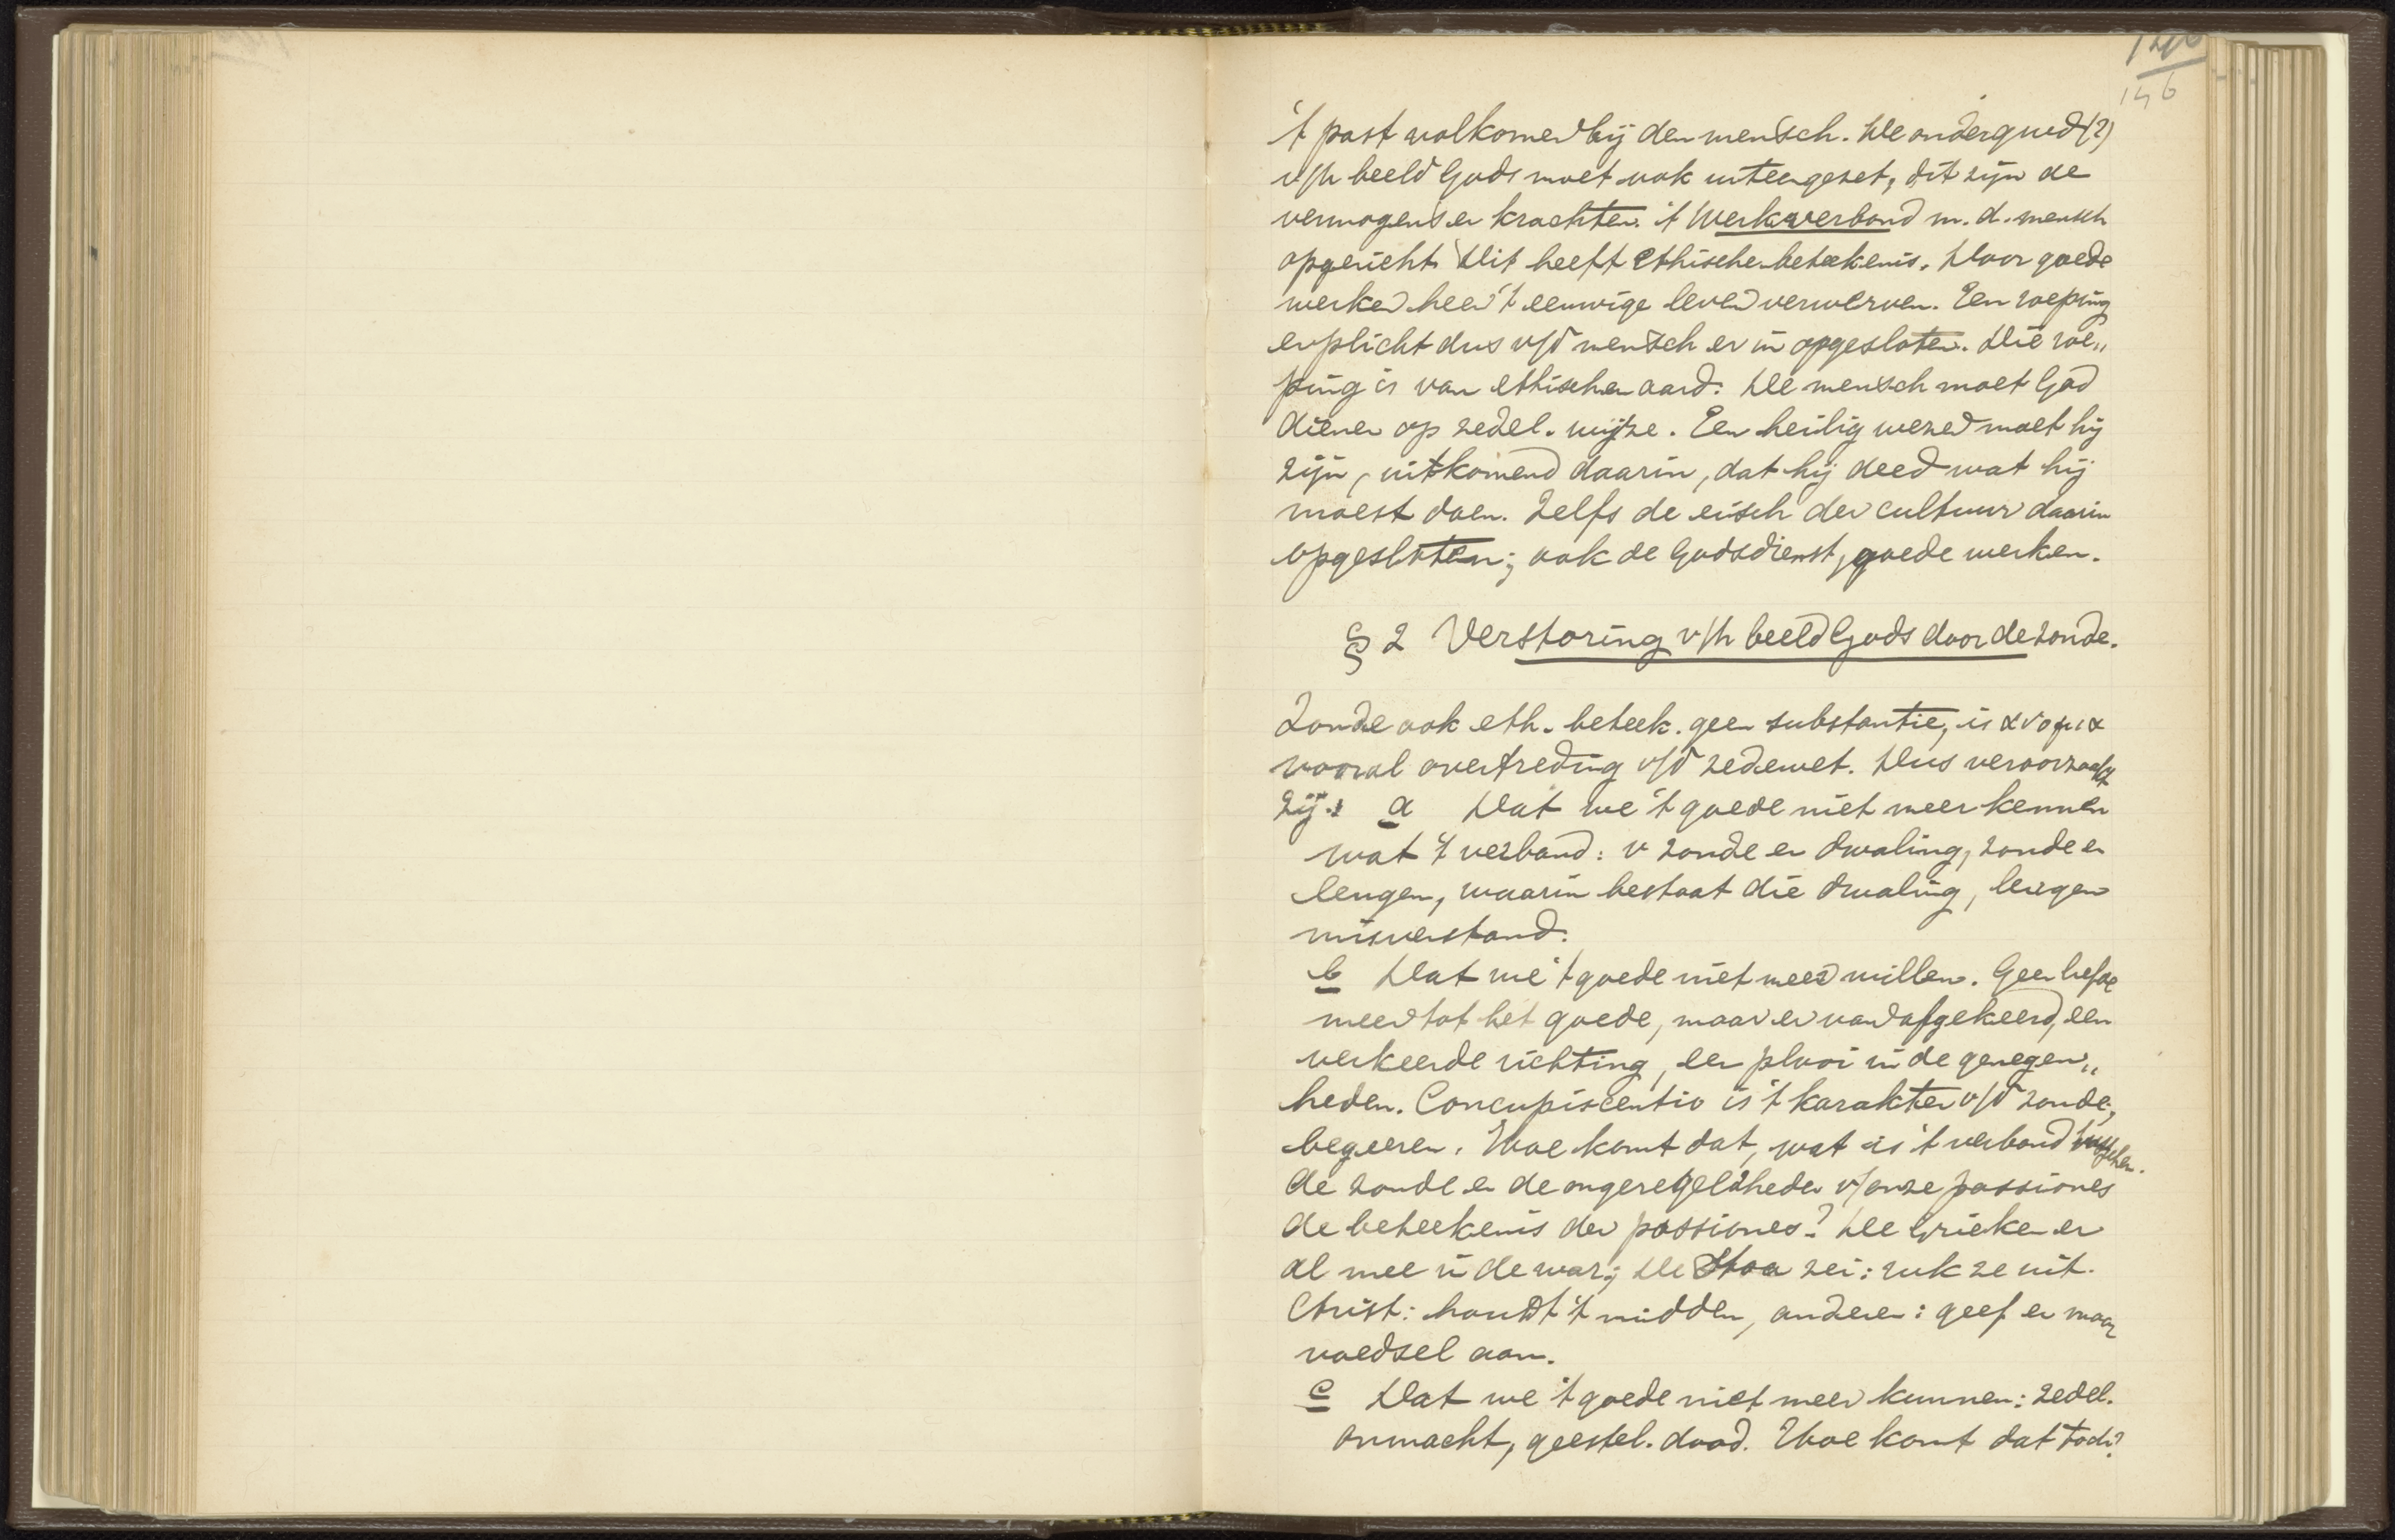 146
't past volkomen bij den mensch. De ondergrond (?)
v/h beeld Gods moet ook uiteengezet, dit zijn de
vermogens en krachten. 't Werkverbond m. d. mensch
opgericht. Dit heeft ethische beteekenis. Door goede
werken heen 't eeuwige leven verwerven. Een roeping
en plicht dus v/d mensch er in opgesloten. Die roe„
ping is van ethischen aard: De mensch moet God
dienen op zedel. wijze. Een heilig wezen moet hij
zijn, uitkomend daarin, dat hij deed wat hij
moest doen. Zelfs de eisch der cultuur daarin
opgesloten; ook de Godsdienst, goede werken.
§ 2 Verstoring v/h beeld Gods door de zonde.
Zonde ook eth. beteek. geen substantie, is ανομια
vooral overtreding v/d zedewet. Dus veroorzaakt
zij: a Dat we 't goede niet meer kennen
wat 't verband: v zonde en dwaling, zonde en
leugen, waarin bestaat die dwaling, leugen
misverstand.
b Dat we 't goede niet meer willen. Geen liefde
meer tot het goede, maar er van afgekeerd, een
verkeerde richting, een plooi in de genegen„
heden. Concupiscentia is 't karakter v/d zonde,
begeeren. Hoe komt dat, wat is 't verband tusschen
de zonde en de ongeregeldheden v/onze passiones
de beteekenis der passiones? De Grieken er
al mee in de war; De Stoa zei: ruk ze uit.
Christ: houdt 't midden, anderen: geef er maar
voedsel aan.
c Dat we 't goede niet meer kunnen: zedel.
onmacht, geestel. dood. Hoe komt dat toch?